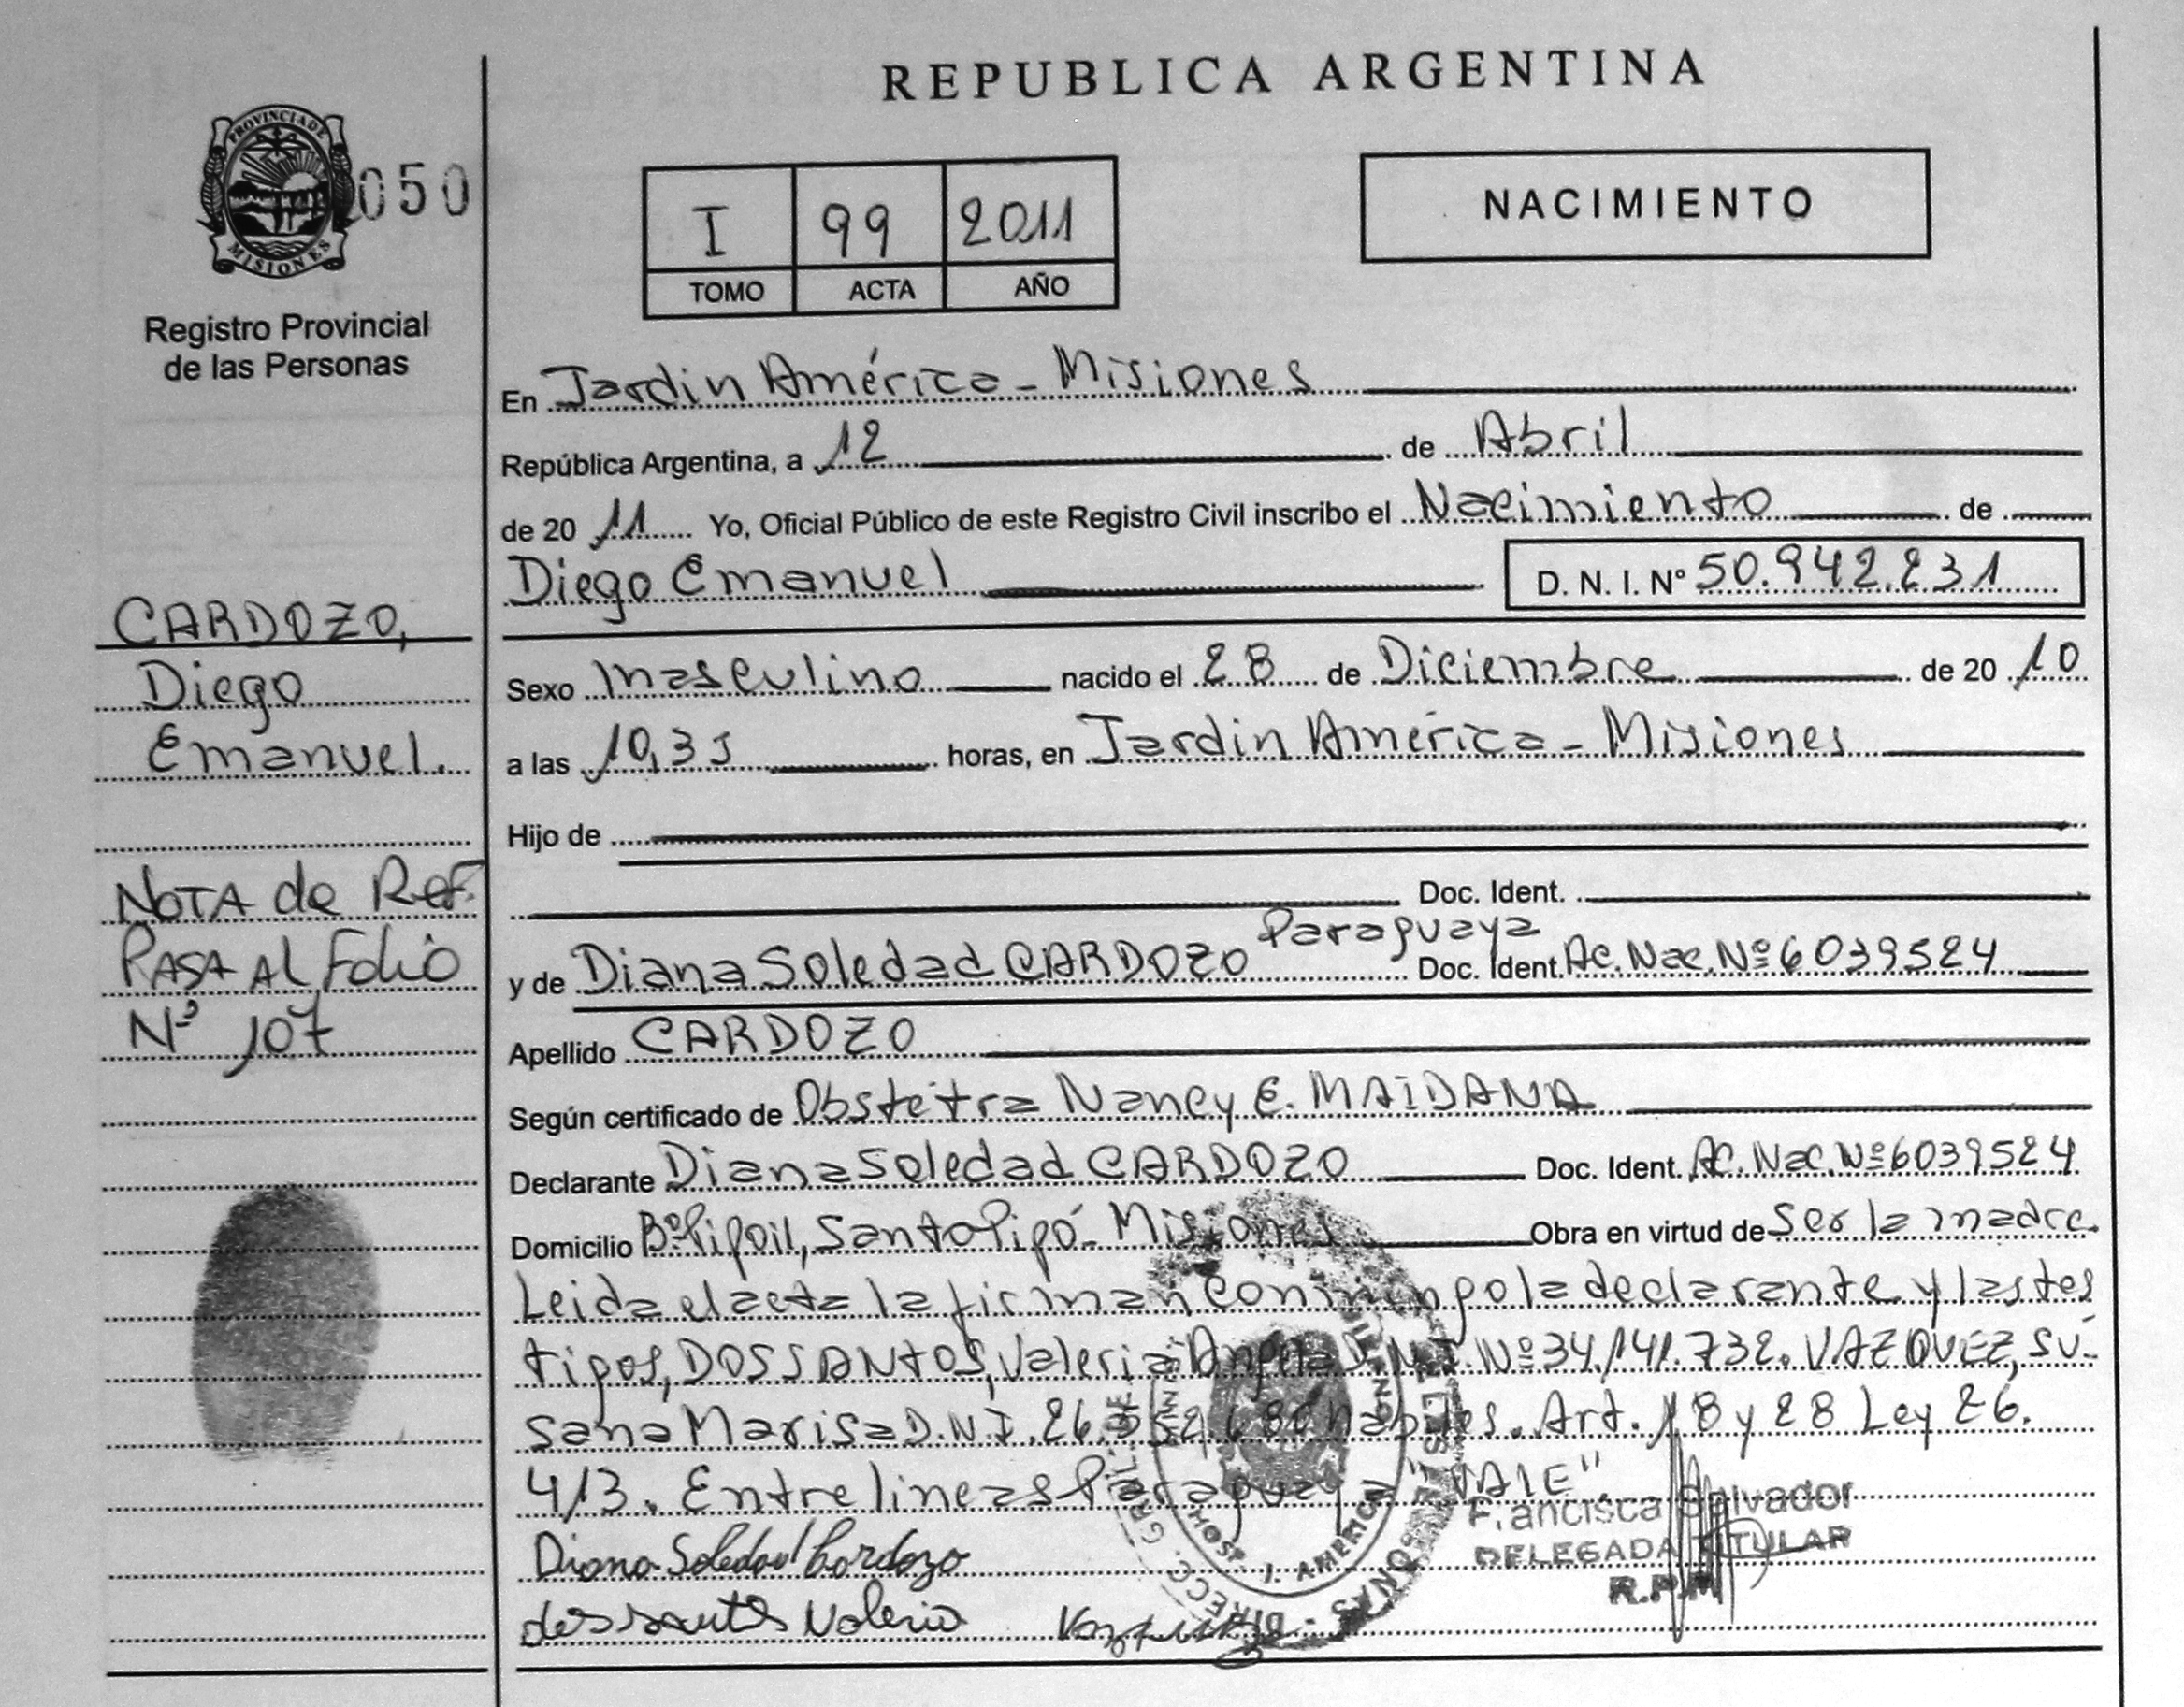 REPUBLICA ARGENTINA
PROVINCIA DE
MISIONES
050
Registro Provincial
de las Personas
I 99 2011
TOMO ACTA AÑO
NACIMIENTO
En Jardin América - Misiones
República Argentina, a 12 de Abril
de 20 11 Yo, Oficial Público de este Registro Civil inscribo el Nacimiento de
Diego Emanuel D. N. I. Nº 50.942.231
CARDOZO,
Diego
Emanuel.
Sexo Masculino nacido el 28 de Diciembre de 20 10
a las 10,35 horas, en Jardin América - Misiones
Hijo de
Doc. Ident.
NOTA de Ref.
PASA Al Folio
Nº 107
Paraguaya
y de Diana Soledad CARDOZO Doc. Ident. Ac. Nac. Nº 6039524
Apellido CARDOZO
Según certificado de Obstetra Nancy E. MAIDANA
Declarante Diana Soledad CARDOZO Doc. Ident. Ac. Nac. Nº 6039524
Domicilio Bº Pipoil, Santo Pipó - Misiones Obra en virtud de Ser la madre.
Leida el acta la firman conmigo la declarante y las tes
tigos, DOS SANTOS, Valeria Angela D.N.I. Nº 34.141.732. VAZQUEZ, Su-
sana Marisa D.N.I. 26. habiles. Art. 18 y 28 Ley 26.
413. Entre lineas Paraguaya "VALE".
Francisca Salvador
DELEGADA TITULAR
R.P.P.
Diana Soledad Cardozo
dos santos Valeria
J. AMERICA